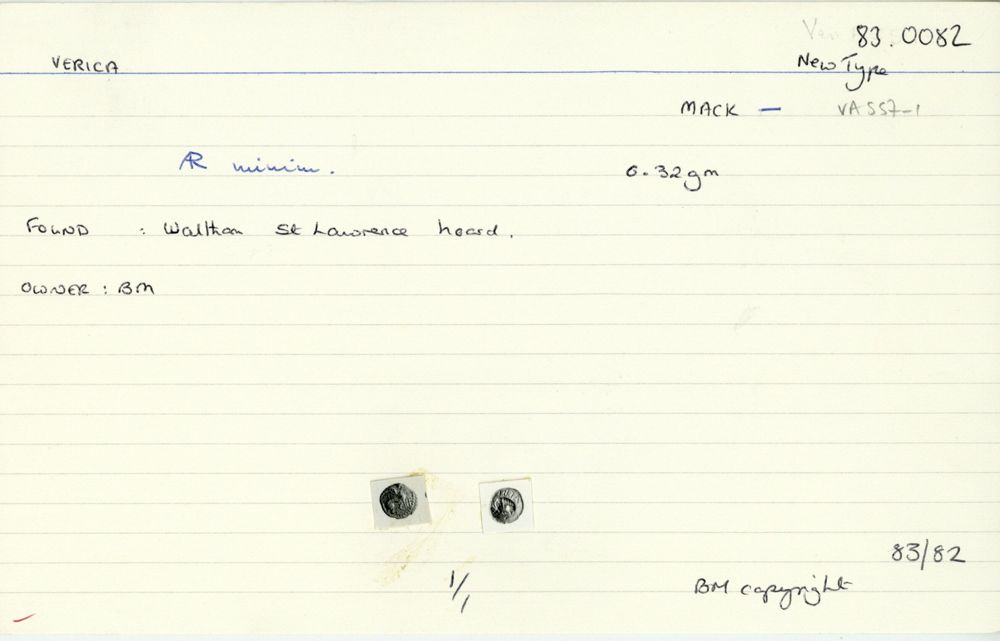 83.0082
VERICA
New Type
MACK — VA 557-1
AR minim. 0.32gm
FOUND : Waltham St Lawrence hoard.
OWNER : BM
83/82
1/1
BM copyright